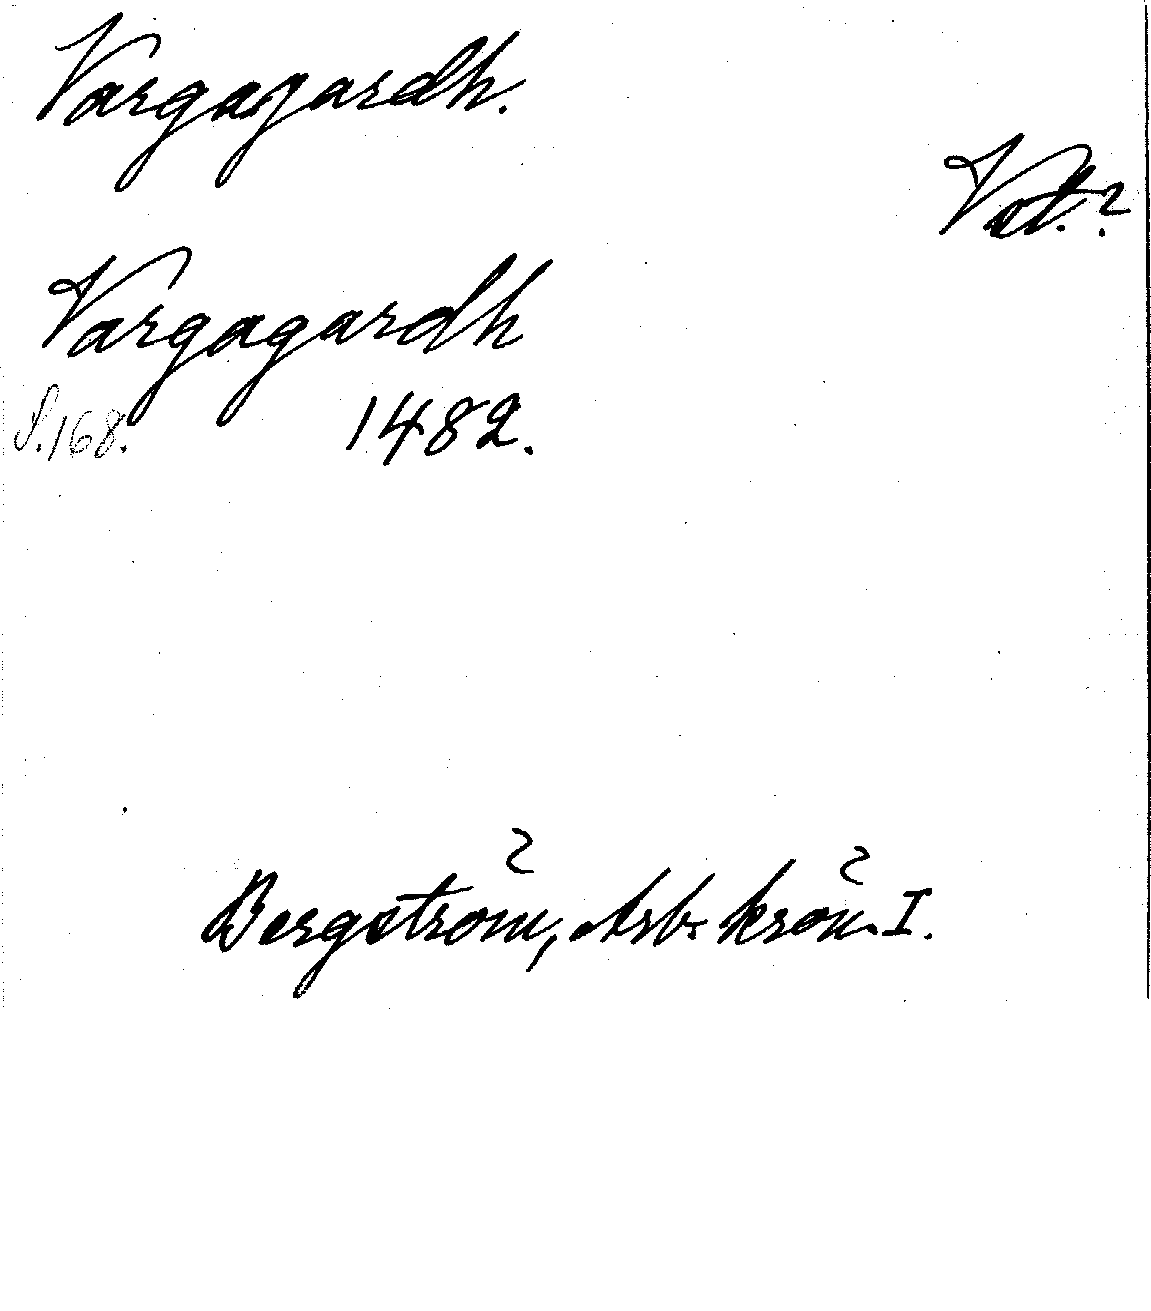 Vargagardh.
Vat.?
Vargagardh
S. 168. 1482.
Bergström, Arb. krön. I.